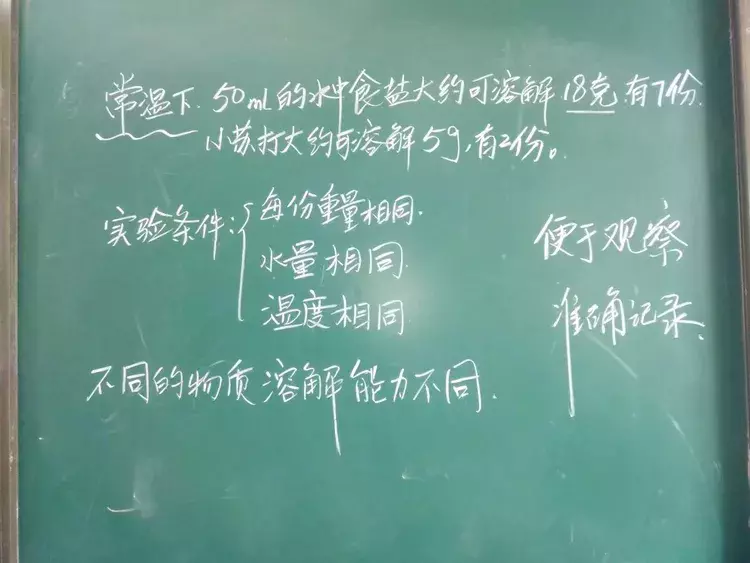 常温下. 50ml的水中食盐大约可溶解18克.有7份.
小苏打大约可溶解5g,有2份。
实验条件:{每份重量相同.
水量相同.
温度相同.
便于观察
准确记录.
不同的物质溶解能力不同.